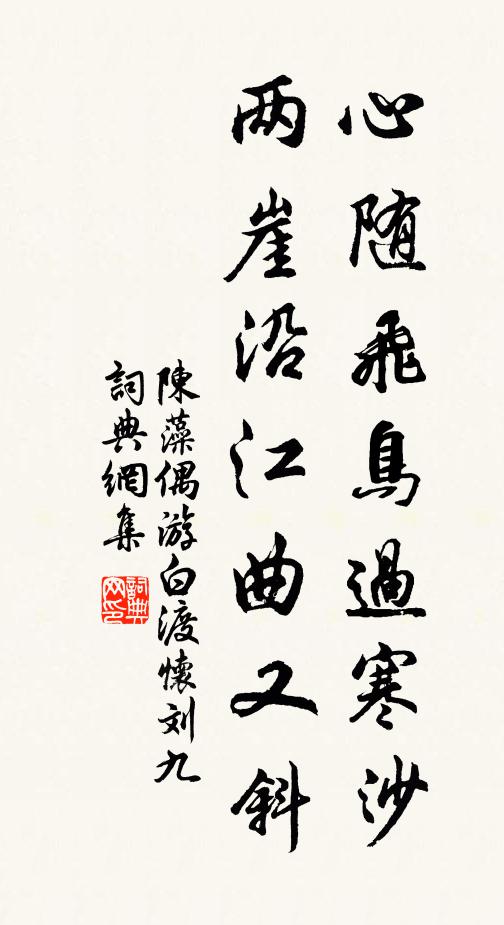 心随飛鳥過寒沙
两崖沿江曲又斜
陳藻偶游白渡懷刘九
詞典網集
詞典网印